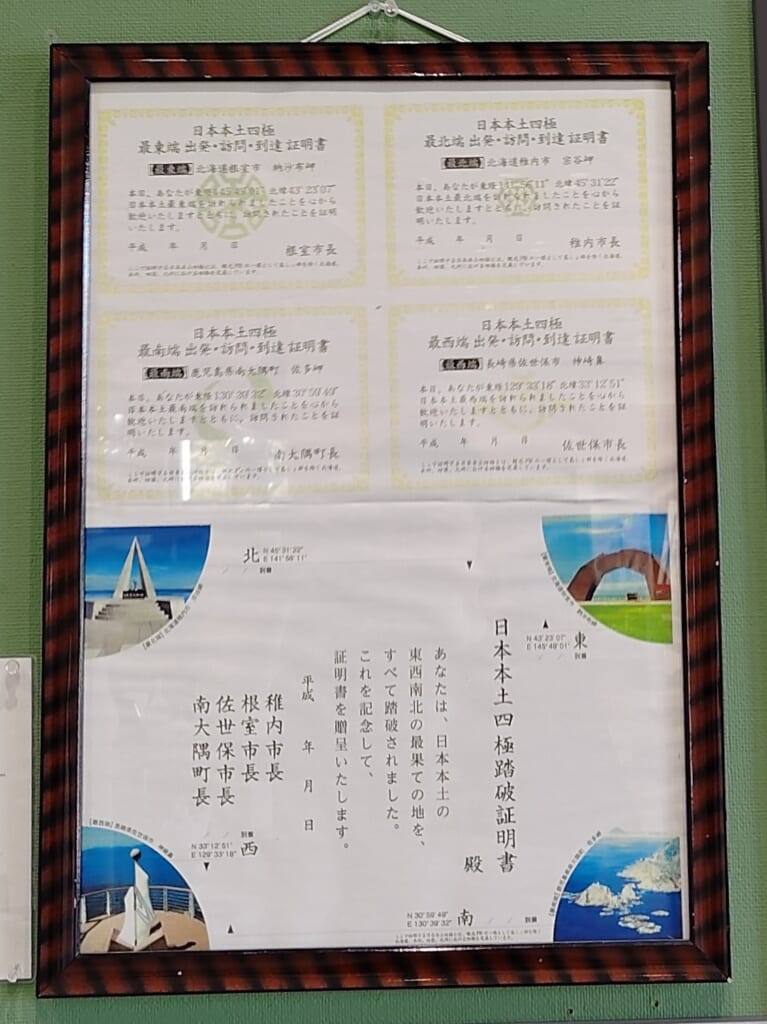 日本本土四極
最東端 出発・訪問・到達 証明書
【最東端】北海道根室市 納沙布岬
本日、あなたが東経145°49′01″北緯43°23′07″
日本本土最東端を訪れられましたことを心から
歓迎いたしますとともに、訪問されたことを証明
いたします。
平成 年 月 日 根室市長
日本本土四極
最北端 出発・訪問・到達 証明書
【最北端】北海道稚内市 宗谷岬
本日、あなたが東経141°56′11″北緯45°31′22″
日本本土最北端を訪れられましたことを心から
歓迎いたしますとともに、訪問されたことを証明
いたします。
平成 年 月 日 稚内市長
日本本土四極
最南端 出発・訪問・到達 証明書
【最南端】鹿児島県南大隅町 佐多岬
本日、あなたが東経130°39′32″北緯30°59′49″
日本本土最南端を訪れられましたことを心から
歓迎いたしますとともに、訪問されたことを証
明いたします。
平成 年 月 日 南大隅町長
日本本土四極
最西端 出発・訪問・到達 証明書
【最西端】長崎県佐世保市 神崎鼻
本日、あなたが東経129°33′18″北緯33°12′51″
日本本土最西端を訪れられましたことを心から
歓迎いたしますとともに、訪問されたことを証
明いたします。
平成 年 月 日 佐世保市長
北 N 45°31′22″
E 141°56′11″
／ ／ 到着
東
N 43°23′07″
E 145°49′01″
／ ／ 到着
日本本土四極踏破証明書
殿
あなたは、日本本土の
東西南北の最果ての地を、
すべて踏破されました。
これを記念して、
証明書を贈呈いたします。
平成 年 月 日
稚内市長
根室市長
佐世保市長
南大隅町長
／ ／ 到着
N 33°12′51″
E 129°33′18″ 西
N 30°59′49″
E 130°39′32″ 南 ／ ／ 到着